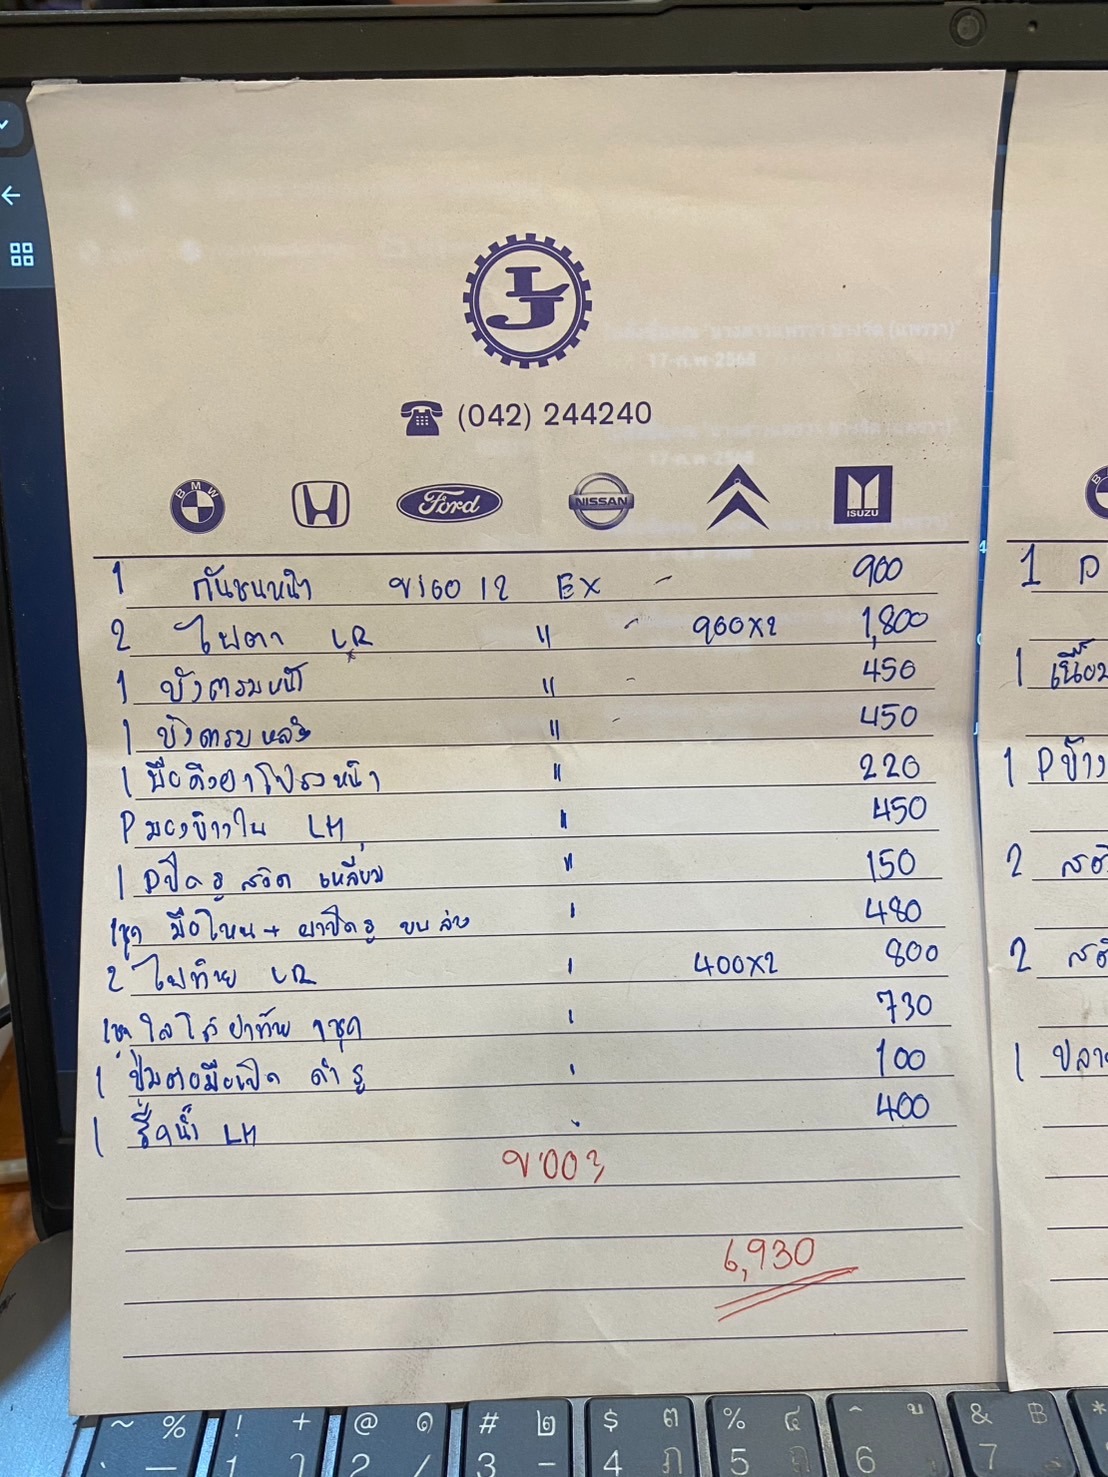 LJ
(042) 244240
BMW Ford NISSAN ISUZU
1 กันชนหน้า VIGO 12 EX - 900
2 ไฟตา LR " - 900x2 1,800
1 บังตรมหน้า " - 450
1 บังตรมหลัง " - 450
1 มือดึงฝาโปรงหน้า " 220
P มองข้างใน LH " 450
1 Pปิดรู สวิด เหลี่ยม " 150
1ชุด มือโหน + ฝาปิดรู บนล่าง 480
2 ไฟท้าย LR 400x2 800
1ชุด ใส้ไก่ฝาท้าย 1ชุด 730
1 มือเปิด ดำ รู 100
1 LH 400
6,930
1 P
1
1 Pข้าง
2
2
1
~ % ! + @ ๑ # ๒ $ ๓ % ๔ ^ & ฿ *
- 1 2 / 3 - 4 ภ 5 6 7